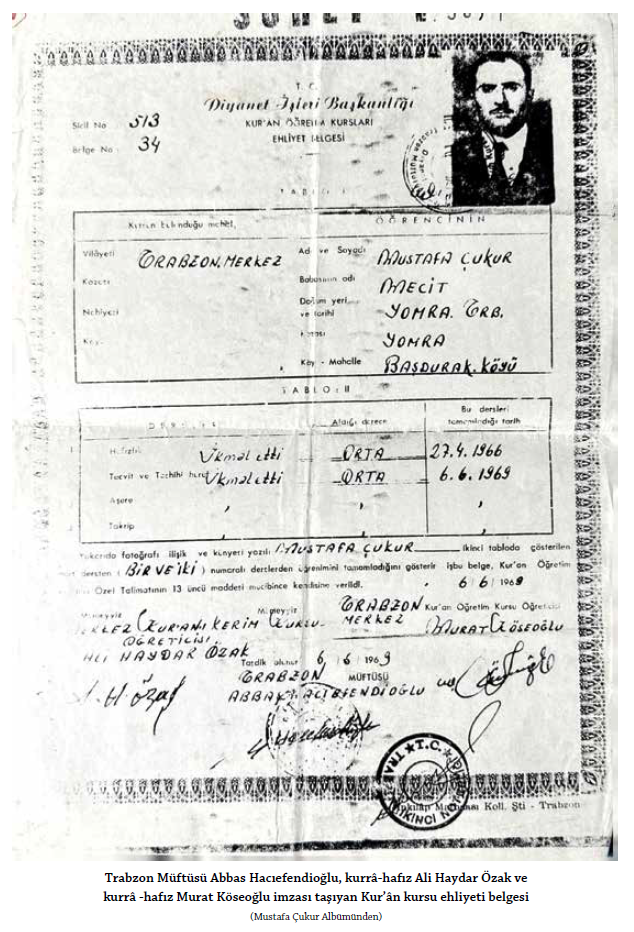 SURET
T. C.
Diyanet İşleri Başkanlığı
KUR'AN ÖĞRETİM KURSLARI
EHLİYET BELGESİ
Sicil No 513
Belge No: 34
TABLO: I
Kursun bulunduğu mahal,
ÖĞRENCİNİN
Vilâyeti TRABZON, MERKEZ
Adı ve Soyadı MUSTAFA ÇUKUR
Kazası
Babasının adı MECİT
Nahiyesi
Doğum yeri
ve tarihi YOMRA. TRB.
YOMRA
Köy - Mahalle BAŞDURAK. KÖYÜ
TABLO: II
DERSLER
Aldığı derece
Bu dersleri
tamamladığı tarih
Hafızlık İkmal etti ORTA 27.4.1966
Tecvit ve Tashihi huruf İkmal etti ORTA 6.6.1969
Aşere
Takrip
Yukarıda fotoğrafı ilişik ve künyesi yazılı MUSTAFA ÇUKUR ikinci tabloda gösterilen
dersten (BİR VE İKİ) numaralı derslerden öğrenimini tamamladığını gösterir işbu belge, Kur'an Öğretim
Özel Talimatının 13 üncü maddesi mucibince kendisine verildi. 6/6/1969
Mümeyyiz
Mümeyyiz
TRABZON Kur'an Öğretim Kursu Öğreticisi
MERKEZ KUR'ANI KERİM KURSU
MERKEZ
MURAT KÖSEOĞLU
ÖĞRETİCİSİ.
ALİ HAYDAR ÖZAK
Tasdik olunur 6/6/1969
TRABZON MÜFTÜSÜ
A. H. Özak
T.C.
İKİNCİ
Matbaası Koll. Şti - Trabzon
Trabzon Müftüsü Abbas Hacıefendioğlu, kurrâ-hafız Ali Haydar Özak ve
kurrâ -hafız Murat Köseoğlu imzası taşıyan Kur'ân kursu ehliyeti belgesi
(Mustafa Çukur Albümünden)